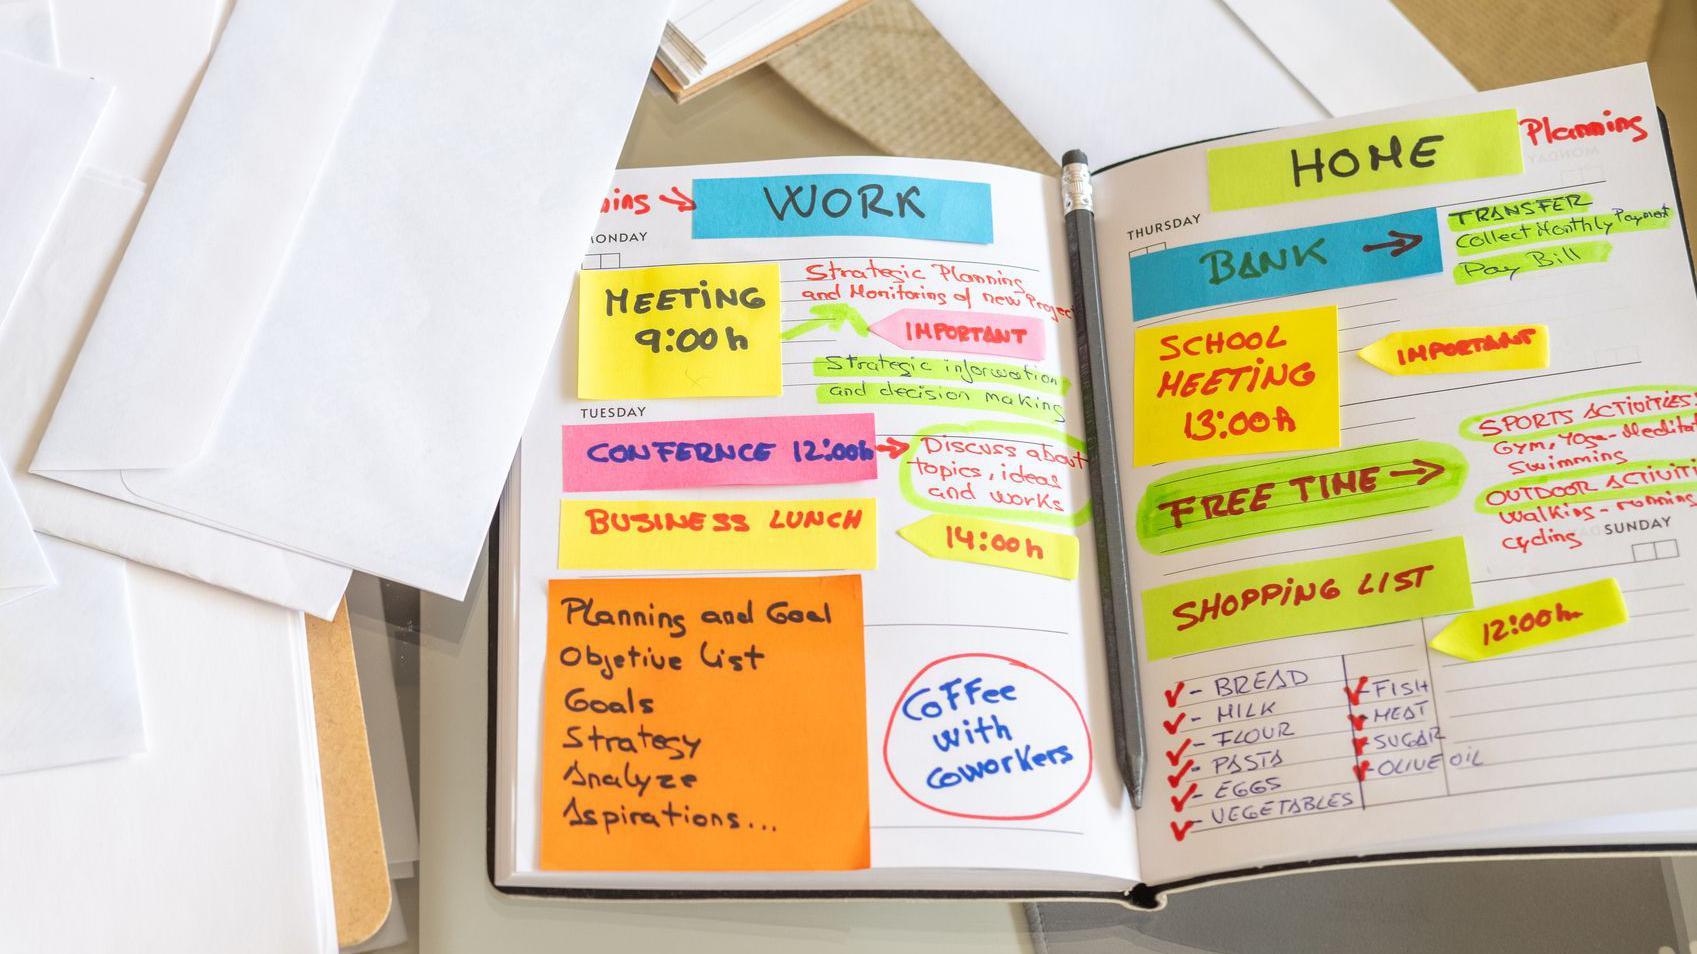 WORK
MONDAY
MEETING
9:00h
Strategic Planning
and Monitoring of new Project
IMPORTANT
Strategic information
and decision making
TUESDAY
CONFERNCE 12:00h
Discuss about
topics, ideas
and works
BUSINESS LUNCH
14:00h
Planning and Goal
Objetive List
Goals
Strategy
Analyze
Aspirations...
Coffee
with
coworkers
HOME
Planning
THURSDAY
BANK
TRANSFER
Collect Monthly Payment
Pay Bill
SCHOOL
MEETING
13:00h
IMPORTANT
FREE TIME
SPORTS ACTIVITIES:
Gym, Yoga-Meditat
Swimming
OUTDOOR ACTIVITI
Walking-running
cycling
SUNDAY
SHOPPING LIST
12:00h
- BREAD
- MILK
- FLOUR
- PASTA
- EGGS
- VEGETABLES
- FISH
- MEAT
- SUGAR
- OLIVE OIL